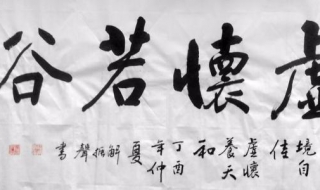 虛懷若谷
境自
佳
虛懷
養天
和
丁酉
年仲
夏
解
振
聲
書